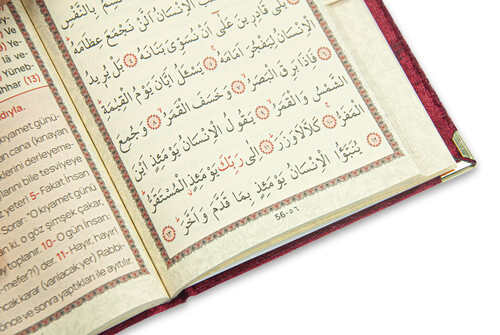 بِالنَّفْسِ
الْاِنْسَانُ اَلَّنْ نَجْمَعَ عِظَامَهُ
بَلٰى قَادِرِينَ عَلٰٓى اَنْ نُسَوِّىَ بَنَانَهُ ﴿٤﴾ بَلْ يُرِيدُ
الْاِنْسَانُ لِيَفْجُرَ اَمَامَهُ ﴿٥﴾ يَسْـَٔلُ اَيَّانَ يَوْمُ الْقِيٰمَةِ
﴿٦﴾ فَاِذَا بَرِقَ الْبَصَرُ ﴿٧﴾ وَخَسَفَ الْقَمَرُ ﴿٨﴾ وَجُمِعَ
الشَّمْسُ وَالْقَمَرُ ﴿٩﴾ يَقُولُ الْاِنْسَانُ يَوْمَئِذٍ اَيْنَ
الْمَفَرُّ ﴿١٠﴾ كَلَّا لَا وَزَرَ ﴿١١﴾ اِلٰى رَبِّكَ يَوْمَئِذٍ الْمُسْتَقَرُّ ﴿١٢﴾
يُنَبَّؤُا الْاِنْسَانُ يَوْمَئِذٍ بِمَا قَدَّمَ وَاَخَّرَ ﴿١٣﴾
56-٥٦
Yüneb-
(13)
kıyamet günü-
cana (kınayan
derleyeme-
bile tesviyeye
yeter! 5- Fakat insan
Sorar: "O kıyamet günü
ki. o göz şimşek çakar,
toplanır. 10- O gün İnsan:
mefer?!) der. 11- Hayır, hayır!
karar (varılacak yer) Rabbi-
önce ve sonra yaptıkları ile ayıtılır.